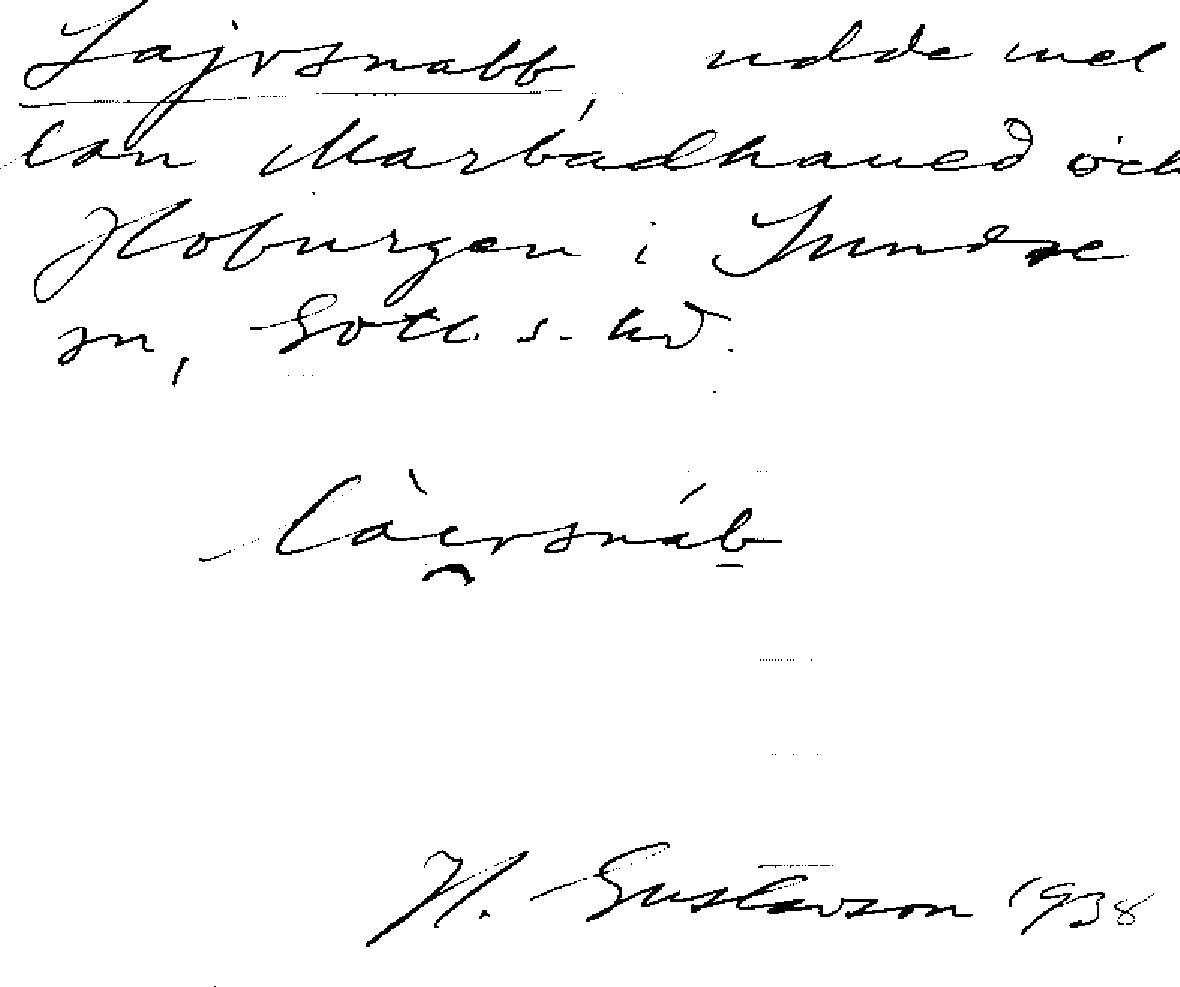 Lajvsnabb, udde mel
lan Marbådhaued och
Hoburgen i Sundre
sn, Gotl. s. hd.
H. Gustavson 1938